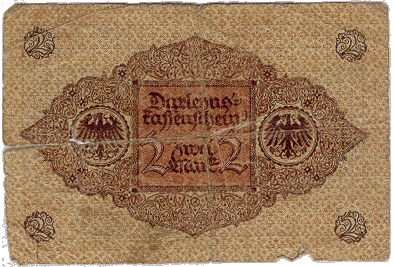 2 2
Darlehns=
kassenschein
2 Zwei 2
Mark
2 2